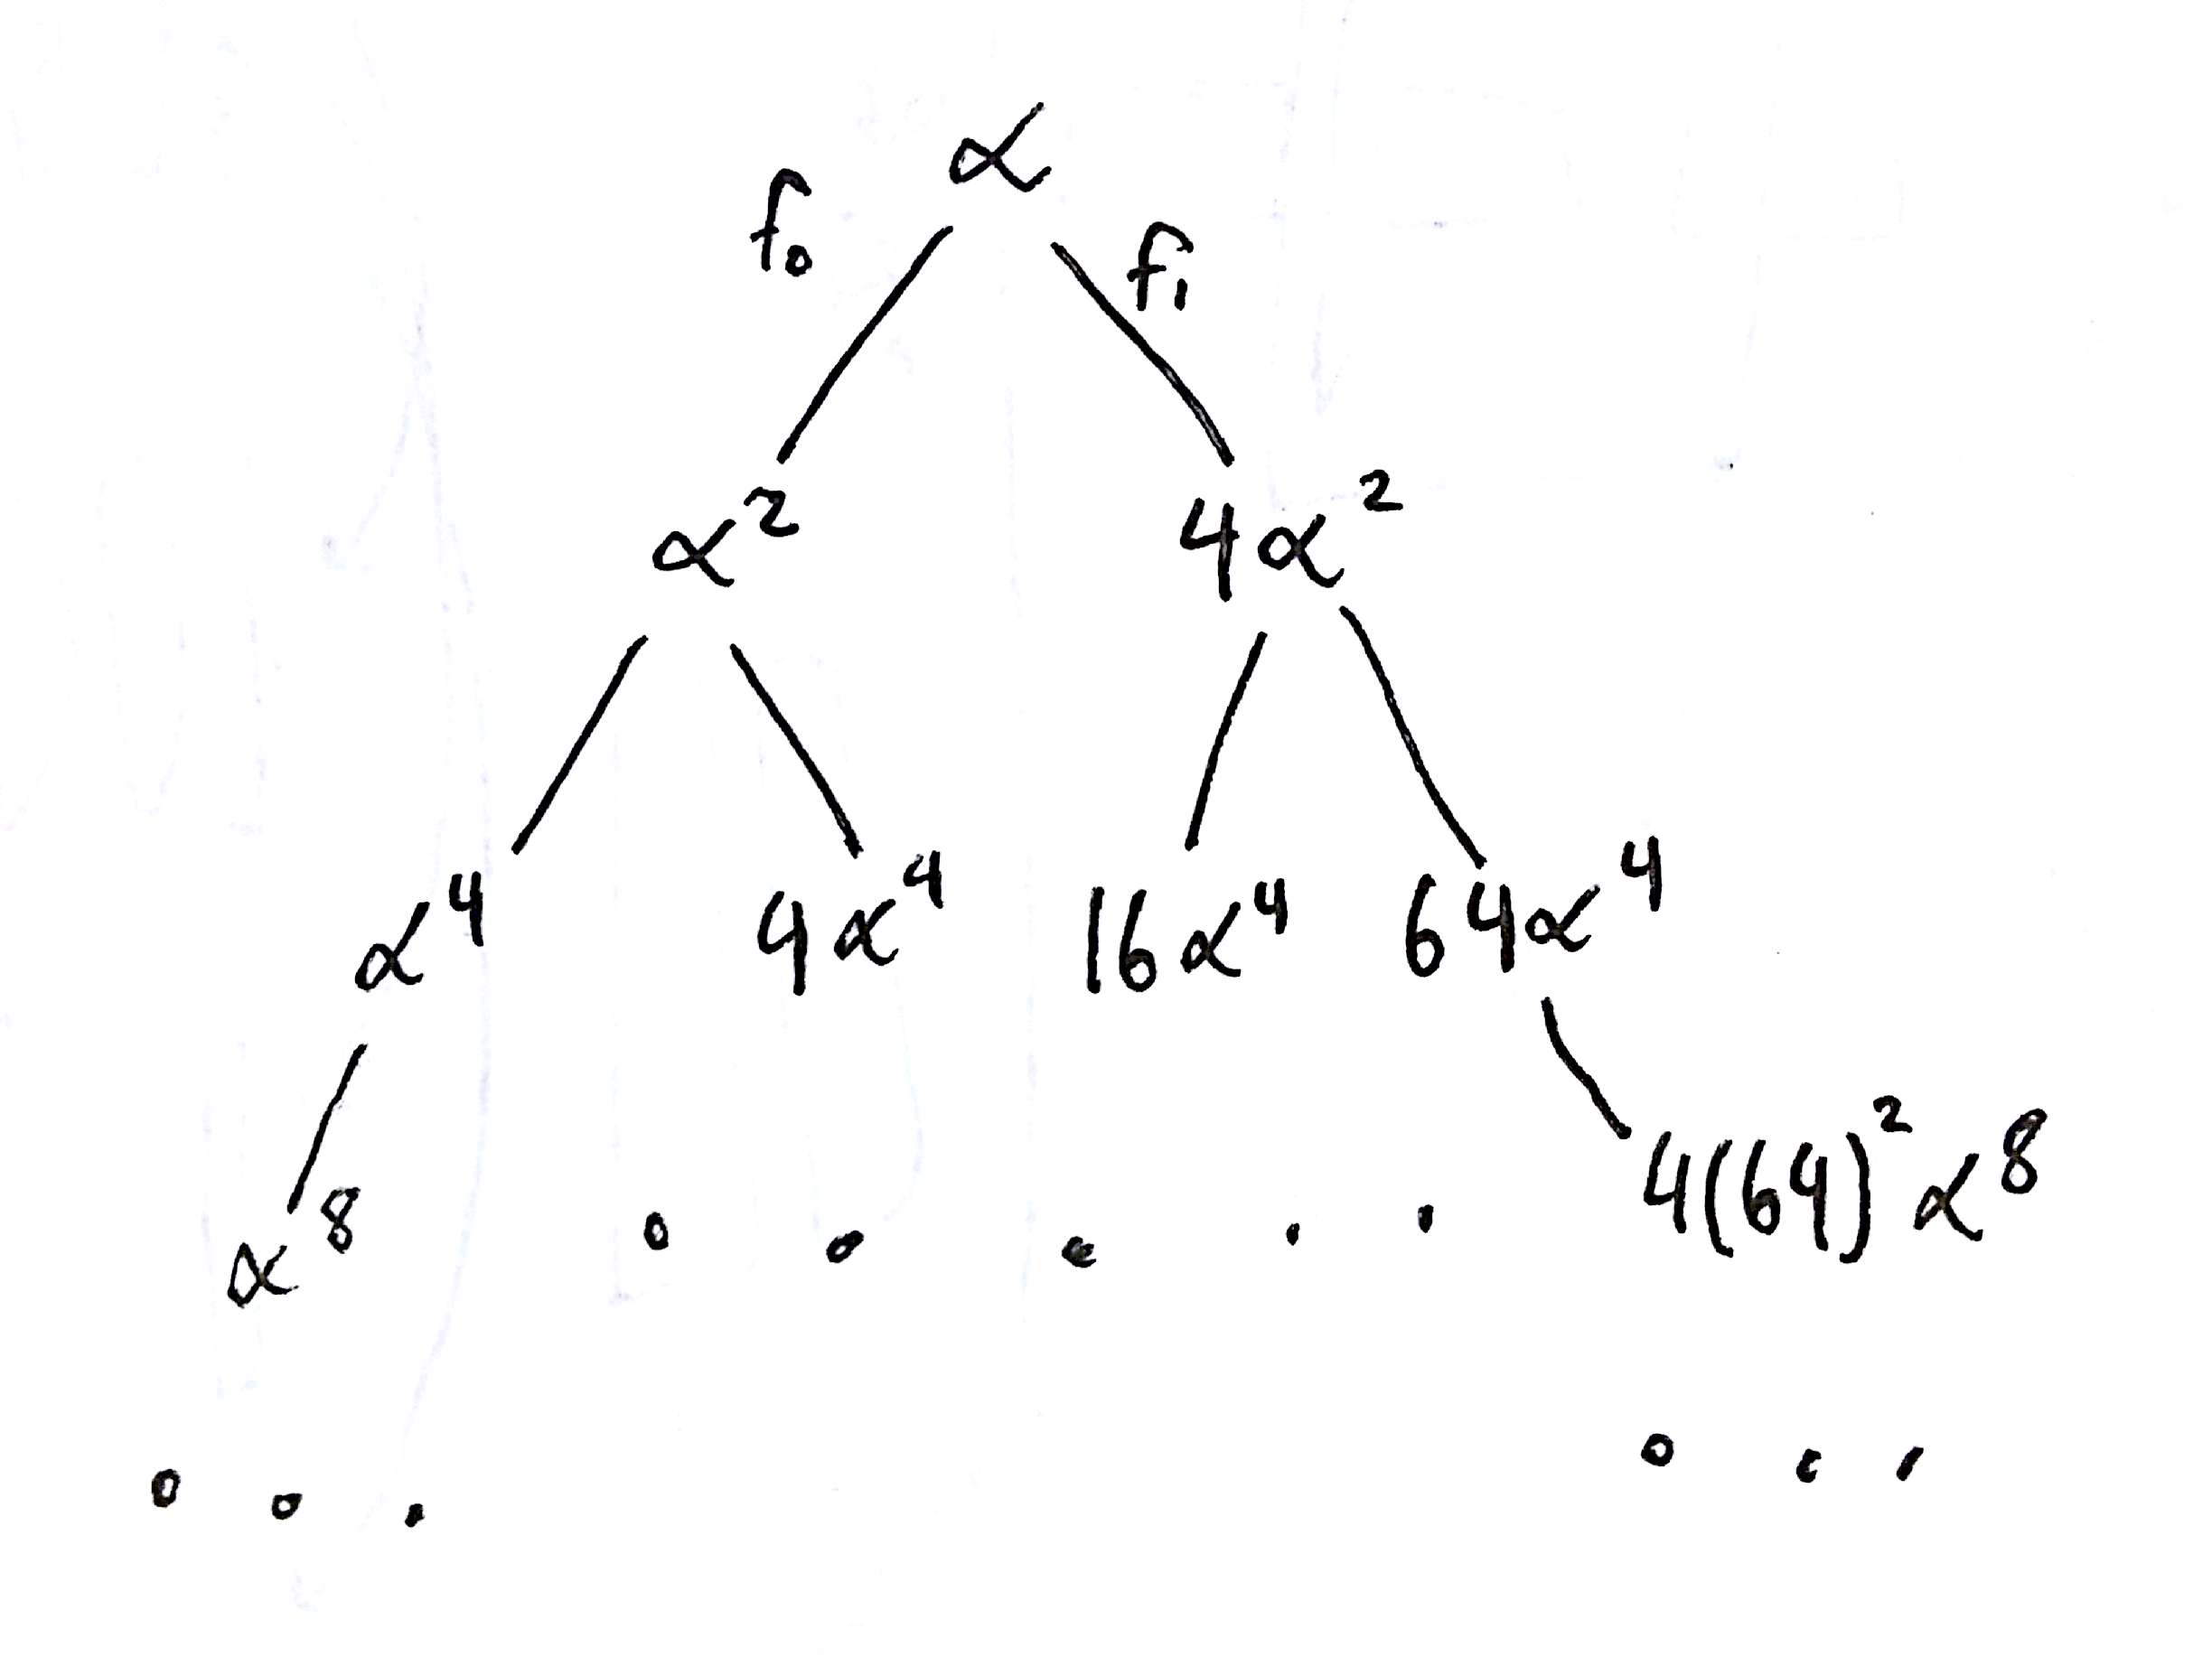 α
f₀ f₁
α² 4α²
α⁴ 4α⁴ 16α⁴ 64α⁴
α⁸ . . . . . 4(64)²α⁸
. . . . . .